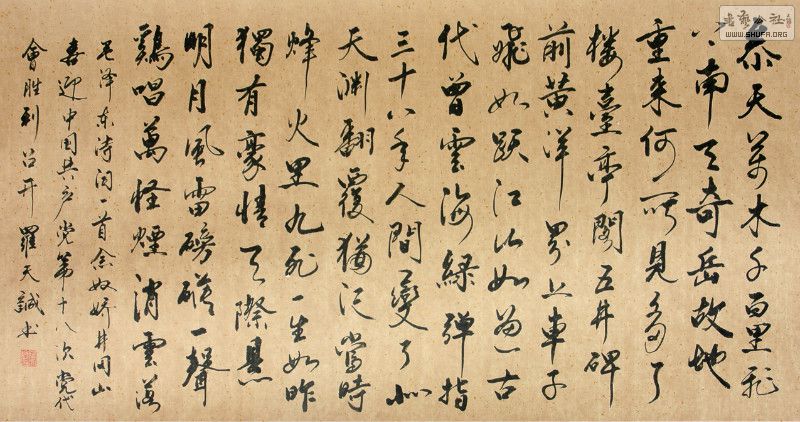 参天萬木千百里飛
上南天奇岳故地
重来何所見多了
樓臺亭閣五井碑
前黄洋界上車子
飛如跃江山如画古
代曾雲海綠弹指
三十八年人間變了似
天渊翻覆猶记當時
烽火里九死一生如昨
獨有豪情天際悬
明月風雷磅礴一聲
鷄唱萬怪煙消雲落
毛泽东诗词一首念奴娇井冈山
喜迎中国共产党第十八次党代
會胜利召开 羅天誠书
WWW.SHUFA.ORG